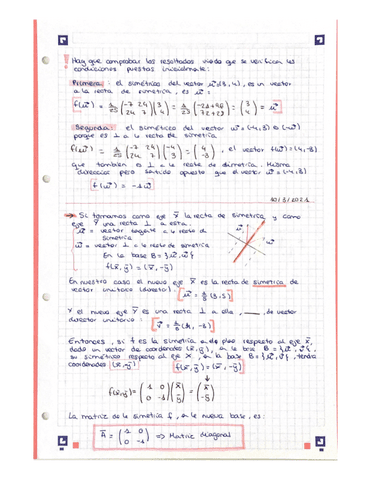 Hay que comprobar los resultados viendo que se verifican las
condiciones puestas inicialmente:
Primera: el simétrico del vector u⃗(3,4), es un vector
a la recta de simetría, es u⃗ =
f(u⃗) = 1/25 (-7 24 / 24 7)(3 / 4) = 1/25 (-21+96 / 72+28) = (3 / 4) = u⃗
Segunda: el simétrico del vector w⃗ = (-4,3) es (-w⃗)
porque es ⊥ a la recta de simetría
f(w⃗) = 1/25 (-7 24 / 24 7)(-4 / 3) = (4 / -3), el vector f(w⃗) = (4,-3)
que también es ⊥ a la recta de simetría. Misma
dirección pero sentido opuesto que el vector w⃗ = (-4,3)
f(w⃗) = -1w⃗
→ Si tomamos como eje X̄ la recta de simetría y como
eje Ȳ una recta ⊥ a esta.
u⃗ = vector sobre la recta de
simetría
w⃗ = vector ⊥ a la recta de simetría
En la base B = {u⃗, w⃗}
f(x̄, ȳ) = (x̄, -ȳ)
En nuestro caso el nuevo eje X̄ es la recta de simetría de
vector unitario (director):
Y el nuevo eje Ȳ es una recta ⊥ a ella, ____, de vector
director unitario:
Entonces, si f es la simetría del plano respecto al eje X̄,
dado un vector de coordenadas (x̄, ȳ), en la base B = {u⃗, v⃗},
su simétrico respecto al eje X, en la base B = {u⃗, v⃗}, tendrá
coordenadas (x̄, -ȳ) f(x̄, ȳ) = (x̄, -ȳ)
f(x̄, ȳ) = (1 0 / 0 -1)(x̄ / ȳ) = (x̄ / -ȳ)
La matriz de la simetría f, en la nueva base, es:
Ā = (1 0 / 0 -1) ⇒ Matriz diagonal